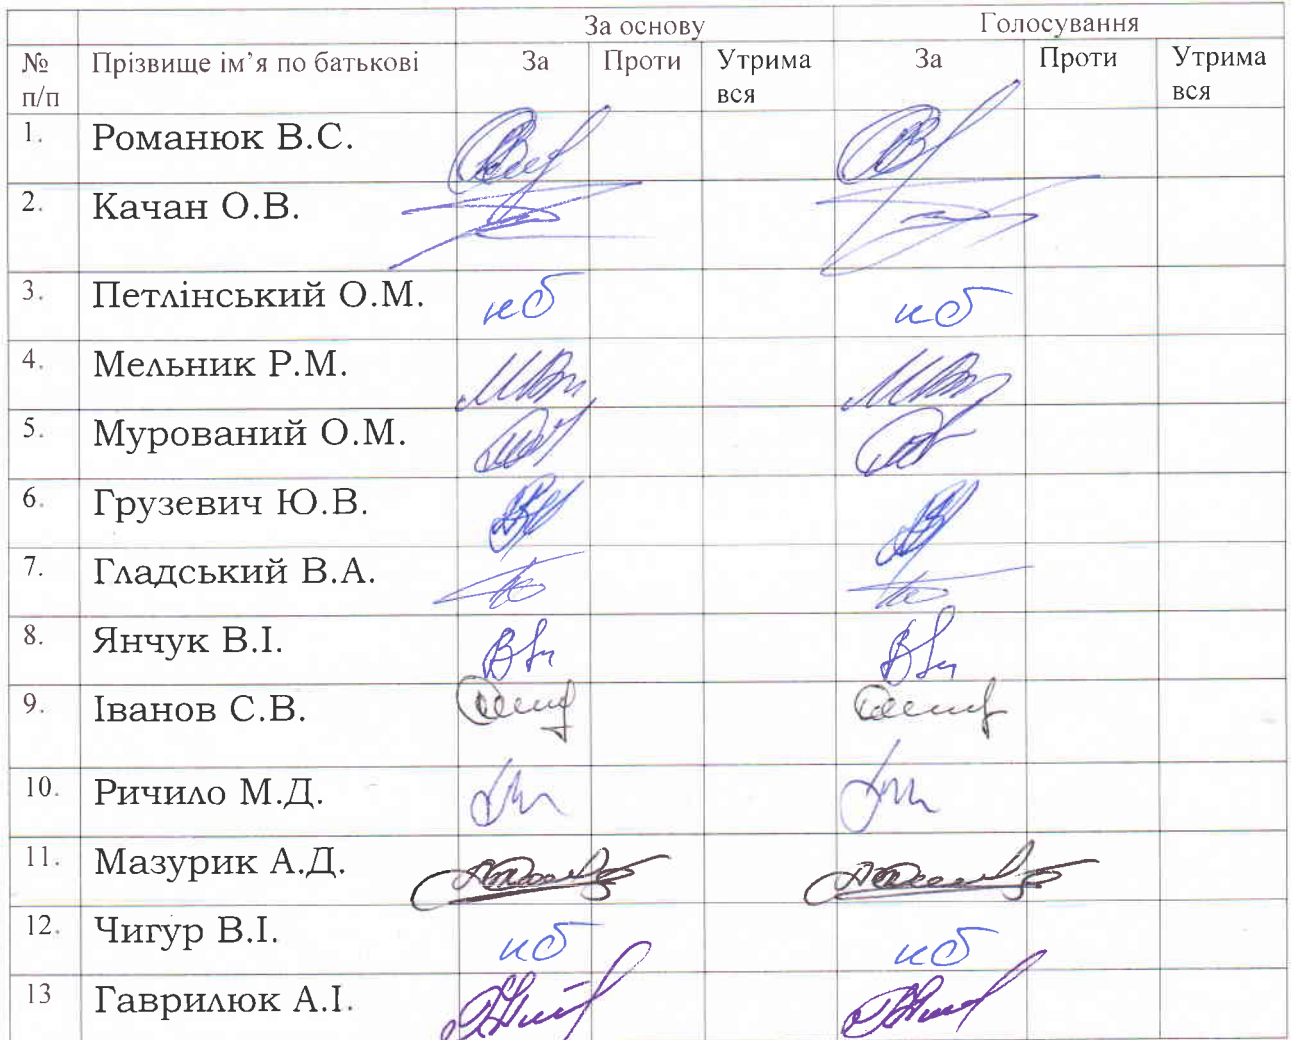 За основу Голосування
№ п/п Прізвище ім’я по батькові За Проти Утрима вся За Проти Утрима вся
1. Романюк В.С.
2. Качан О.В.
3. Петлінський О.М. нб нб
4. Мельник Р.М.
5. Мурований О.М.
6. Грузевич Ю.В.
7. Гладський В.А.
8. Янчук В.І.
9. Іванов С.В.
10. Ричило М.Д.
11. Мазурик А.Д.
12. Чигур В.І. нб нб
13 Гаврилюк А.І.